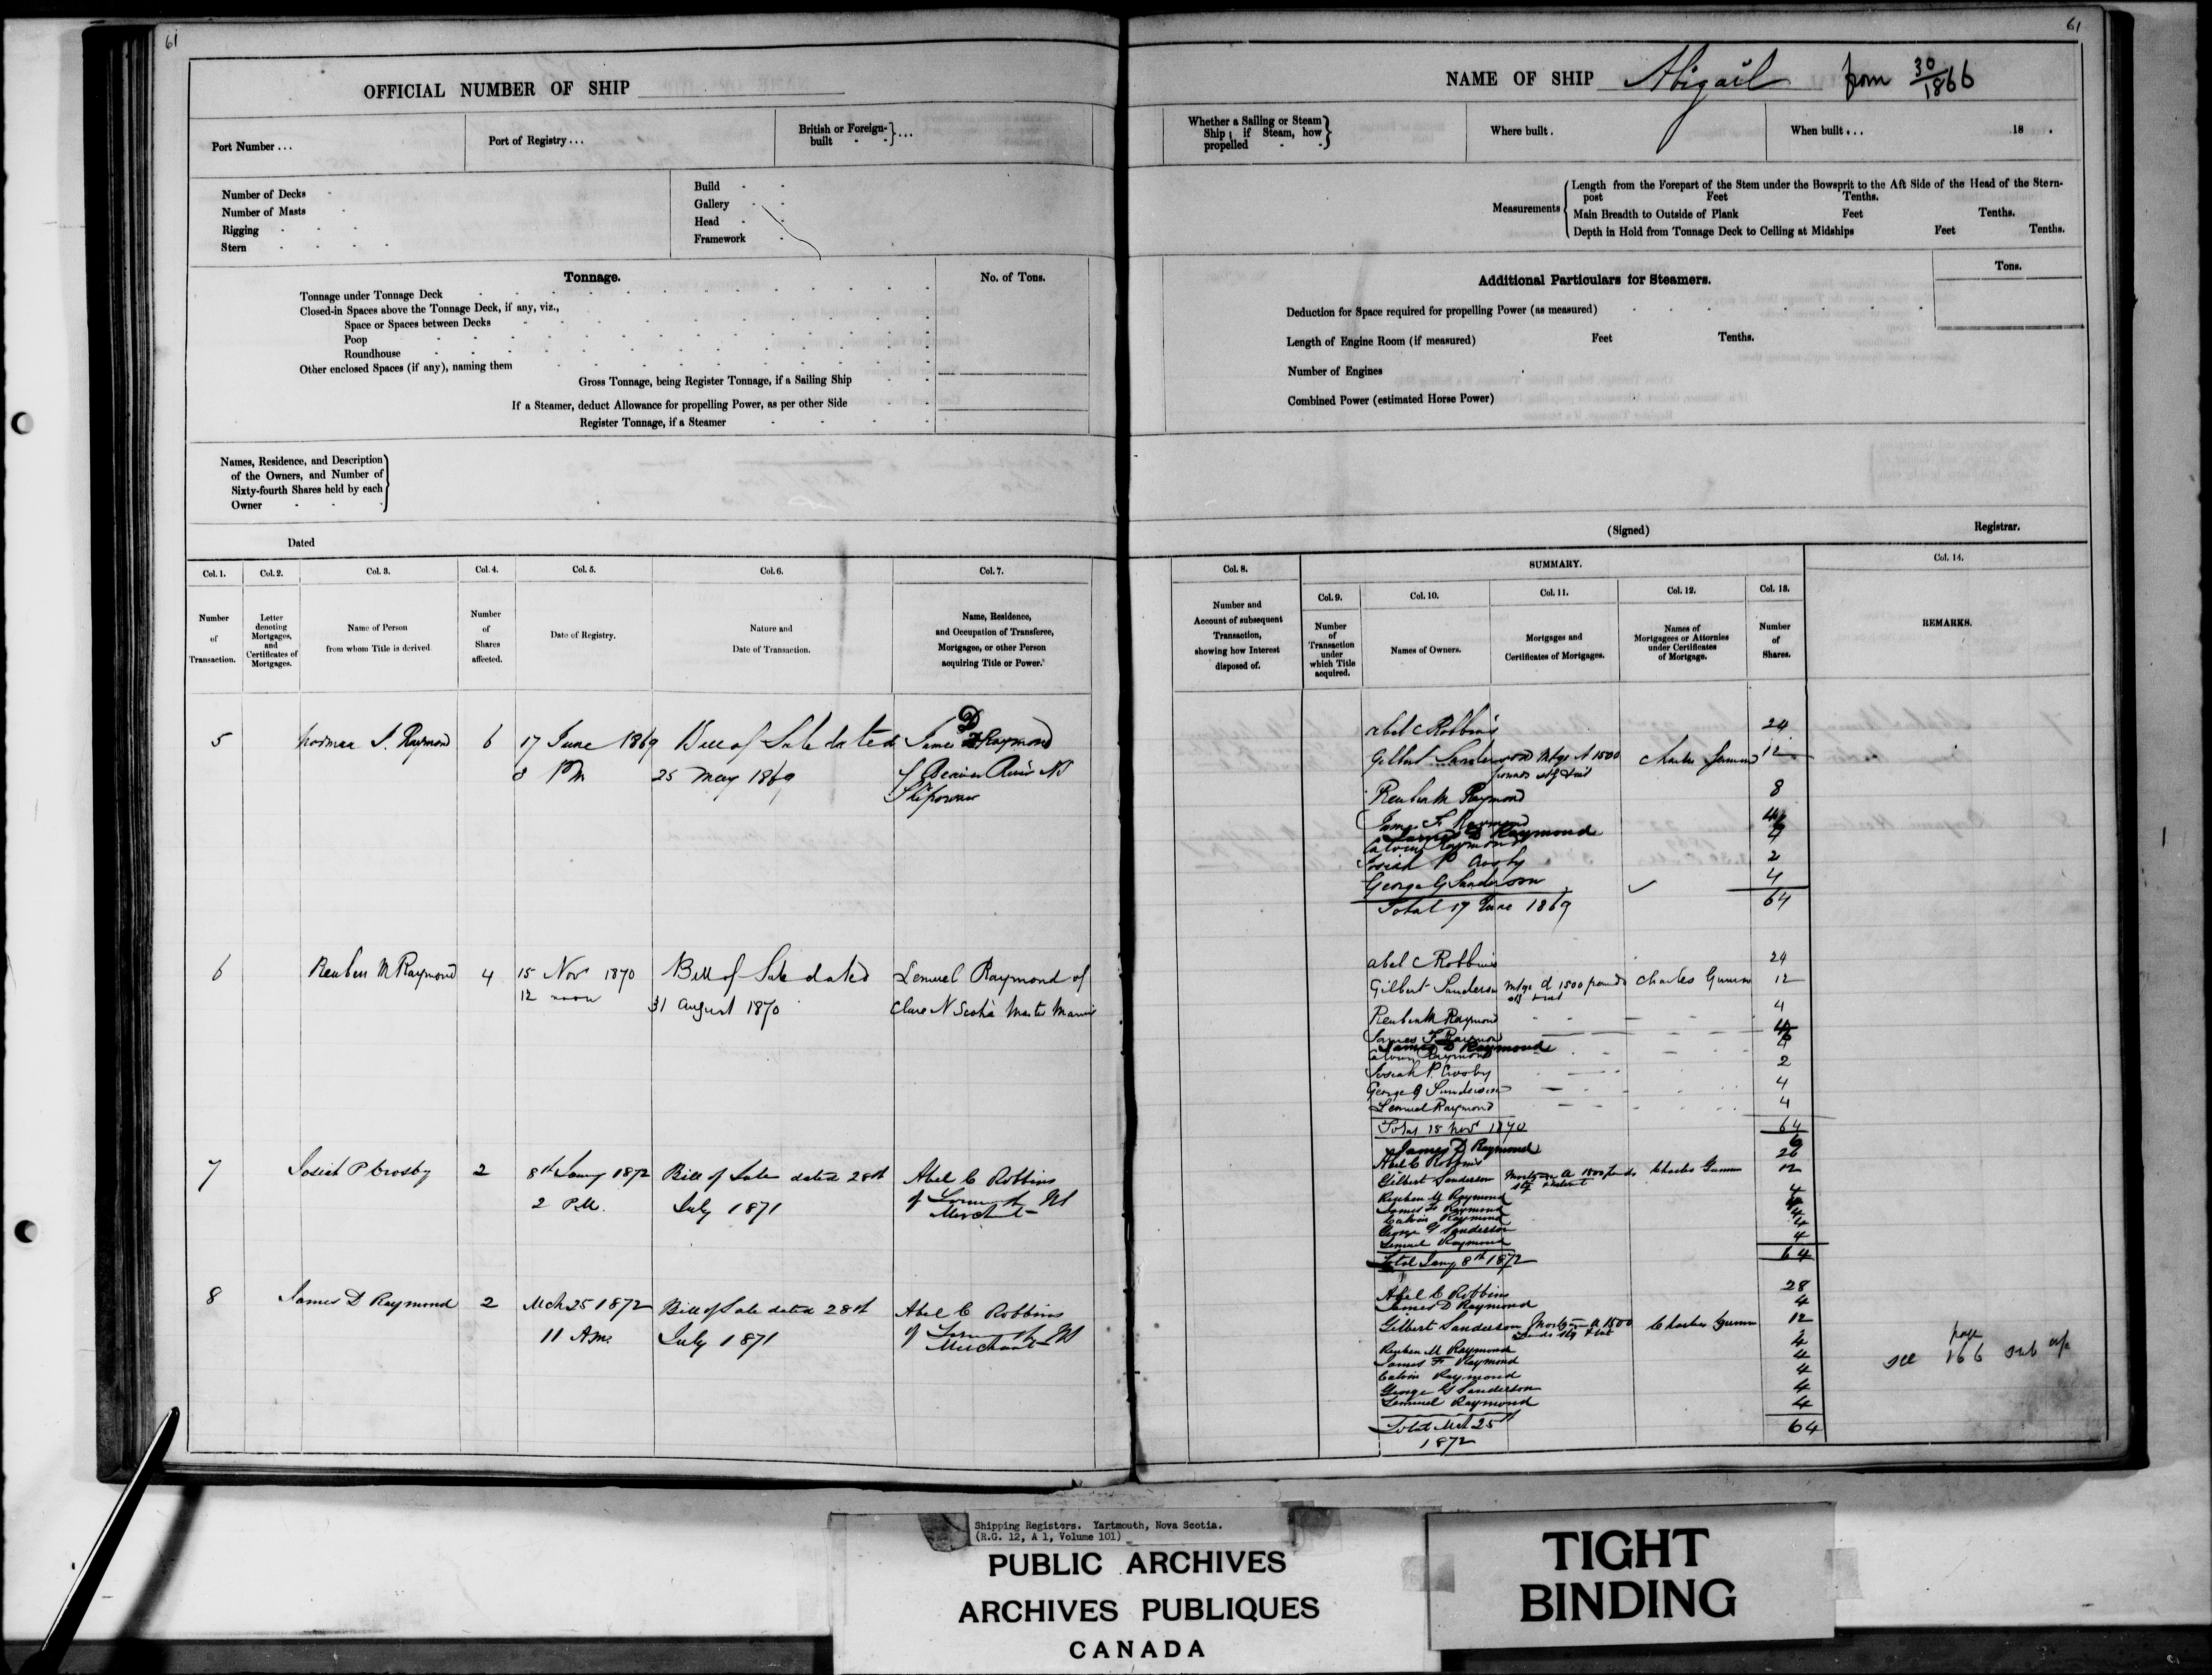 61
OFFICIAL NUMBER OF SHIP
Port Number ...
Port of Registry ...
British or Foreign-
built - - } ...
Number of Decks
Number of Masts
Rigging
Stern
Build
Gallery
Head
Framework
Tonnage.
No. of Tons.
Tonnage under Tonnage Deck
Closed-in Spaces above the Tonnage Deck, if any, viz.,
Space or Spaces between Decks
Poop
Roundhouse
Other enclosed Spaces (if any), naming them
Gross Tonnage, being Register Tonnage, if a Sailing Ship
If a Steamer, deduct Allowance for propelling Power, as per other Side
Register Tonnage, if a Steamer
Names, Residence, and Description
of the Owners, and Number of
Sixty-fourth Shares held by each
Owner
Dated
Col. 1.
Number
of
Transaction.
Col. 2.
Letter
denoting
Mortgages,
and
Certificates of
Mortgages.
Col. 3.
Name of Person
from whom Title is derived
Col. 4.
Number
of
Shares
affected.
Col. 5.
Date of Registry.
Col. 6.
Nature and
Date of Transaction.
Col. 7.
Name, Residence,
and Occupation of Transferee,
Mortgagee, or other Person
acquiring Title or Power.
5 Norman J. Raymond 6 17 June 1869 Bill of Sale dated James D Raymond
3 PM 25 May 1869 of Beaver River NS
Shipowner
6 Reuben M Raymond 4 15 Nov 1870 Bill of Sale dated Lemuel Raymond of
12 noon 31 August 1870 Clare N Scotia Master Mariner
7 Josiah P Crosby 2 8th Jany 1872 Bill of Sale dated 28th Abel C Robbins
2 P.M. July 1871 of Yarmouth NS
Merchant
8 James D Raymond 2 Mch 25 1872 Bill of Sale dated 28th Abel C Robbins
11 A.M. July 1871 of Yarmouth NS
Merchant
61
NAME OF SHIP Abigail from 30/1866
Whether a Sailing or Steam
Ship; if Steam, how
propelled
Where built.
When built ... 18 .
Measurements
Length from the Forepart of the Stem under the Bowsprit to the Aft Side of the Head of the Stern-
post Feet Tenths.
Main Breadth to Outside of Plank Feet Tenths.
Depth in Hold from Tonnage Deck to Ceiling at Midships Feet Tenths.
Additional Particulars for Steamers.
Tons.
Deduction for Space required for propelling Power (as measured)
Length of Engine Room (if measured) Feet Tenths.
Number of Engines
Combined Power (estimated Horse Power)
(Signed) Registrar.
Col. 8.
Number and
Account of subsequent
Transaction,
showing how Interest
disposed of.
SUMMARY.
Col. 9.
Number
of
Transaction
under
which Title
acquired.
Col. 10.
Names of Owners.
Col. 11.
Mortgages and
Certificates of Mortgages.
Col. 12.
Names of
Mortgagees or Attornies
under Certificates
of Mortgage.
Col. 13.
Number
of
Shares.
Col. 14.
REMARKS.
Abel C Robbins 24
Gilbert Sanderson Mtge A 1500 Charles 12
pounds stg & int
Reuben M Raymond 8
James F Raymond 4
James D Raymond 6
Calvin Raymond 4
Josiah P Crosby 2
George G Sanderson 4
Total 17 June 1869 64
Abel C Robbins 24
Gilbert Sanderson Mtge A 1500 pounds Charles 12
stg & int
Reuben M Raymond 4
James F Raymond 4
James D Raymond 6
Calvin Raymond 4
Josiah P. Crosby 2
George G Sanderson 4
Lemuel Raymond 4
Total 15 Nov 1870 64
James D Raymond 6
Abel C Robbins 26
Gilbert Sanderson Mortgage A 1500 pounds Charles 12
stg & interest
Reuben M Raymond 4
James F Raymond 4
Calvin Raymond 4
George G Sanderson 4
Lemuel Raymond 4
Total Jany 8th 1872 64
Abel C Robbins 28
James D Raymond 4
Gilbert Sanderson Mortgage A 1500 Charles 12
pounds stg & int
Reuben M Raymond 4
James F Raymond 4
Calvin Raymond 4
George G Sanderson 4
Lemuel Raymond 4
Total Mch 25th 64
1872
see page 166
Shipping Registers. Yartmouth, Nova Scotia.
(R.G. 12, A 1, Volume 101)
PUBLIC ARCHIVES
ARCHIVES PUBLIQUES
CANADA
TIGHT
BINDING